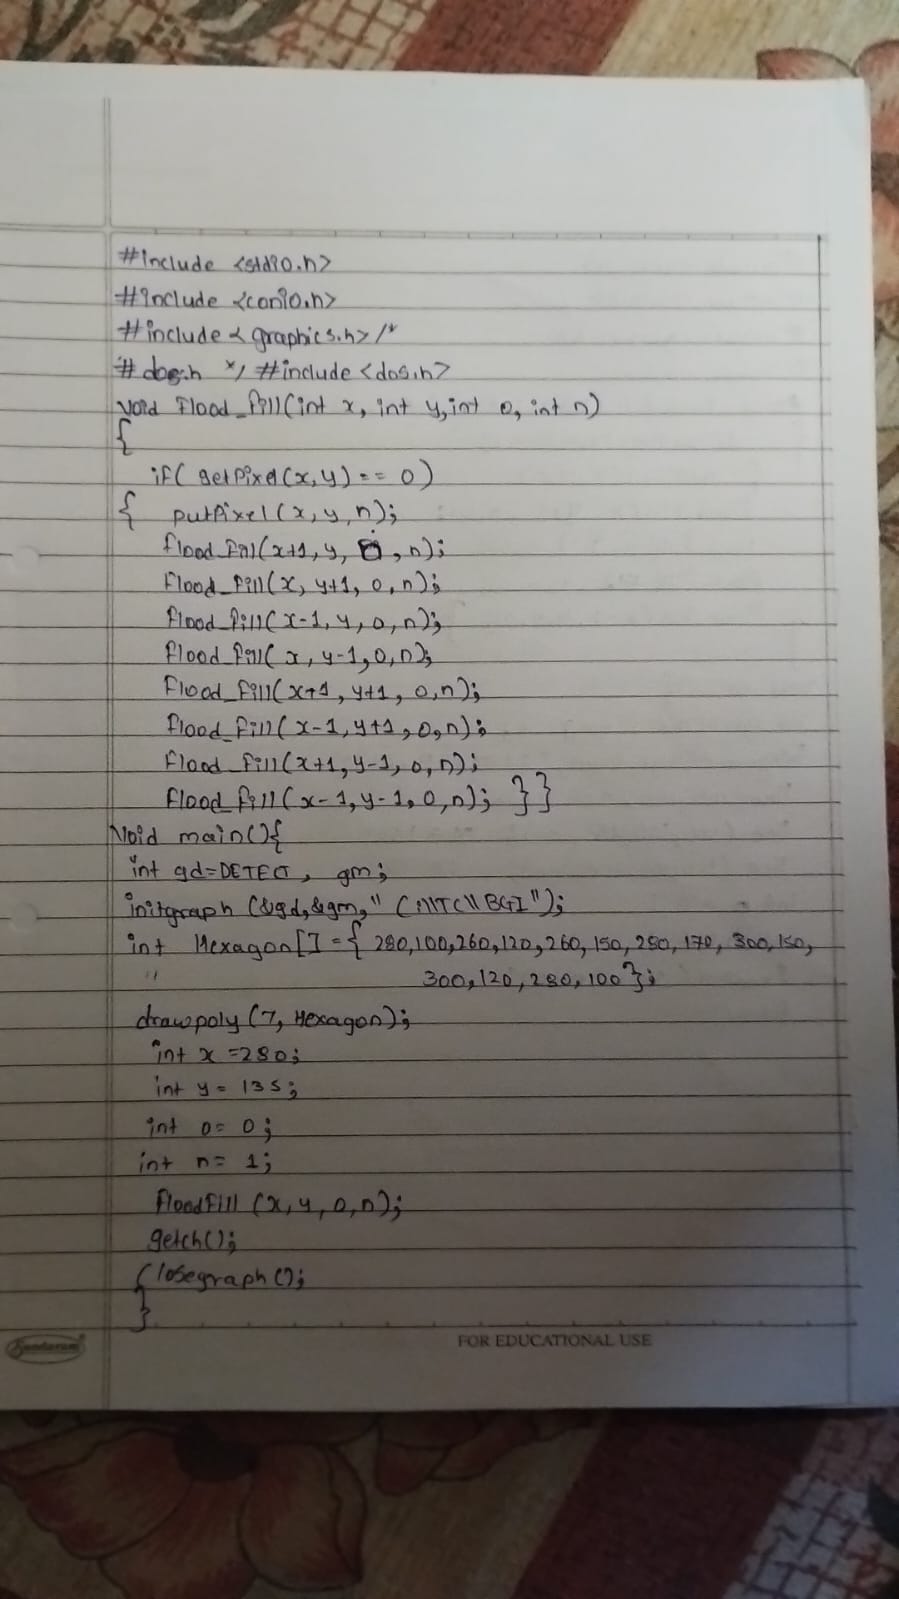 #include <stdio.h>
#include <conio.h>
#include < graphics.h> /*
# dos.h */ #include <dos.h>
void Flood_fill(int x, int y, int o, int n)
{
if( getPixel(x,y) == 0)
{ putPixel(x,y,n);
flood_fill(x+1, y, , n);
flood_fill(x, y+1, 0, n);
flood_fill( x-1, y, 0, n);
flood_fill( x, y-1, 0, n);
flood_fill(x+1, y+1, 0, n);
flood_fill( x-1, y+1, 0, n);
flood_fill(x+1, y-1, 0, n);
flood_fill( x-1, y-1, 0, n); }}
Void main(){
int gd=DETECT, gm;
initgraph (&gd,&gm," C:\\TC\\BGI");
int Hexagon[] = { 280,100,260,120,260,150,280,170, 300,150,
" 300,120,280,100};
drawpoly (7, Hexagon);
int x =280;
int y = 135;
int o= 0;
int n= 1;
floodfill (x,y,0,n);
getch();
Closegraph ();
}
Sundaram
FOR EDUCATIONAL USE